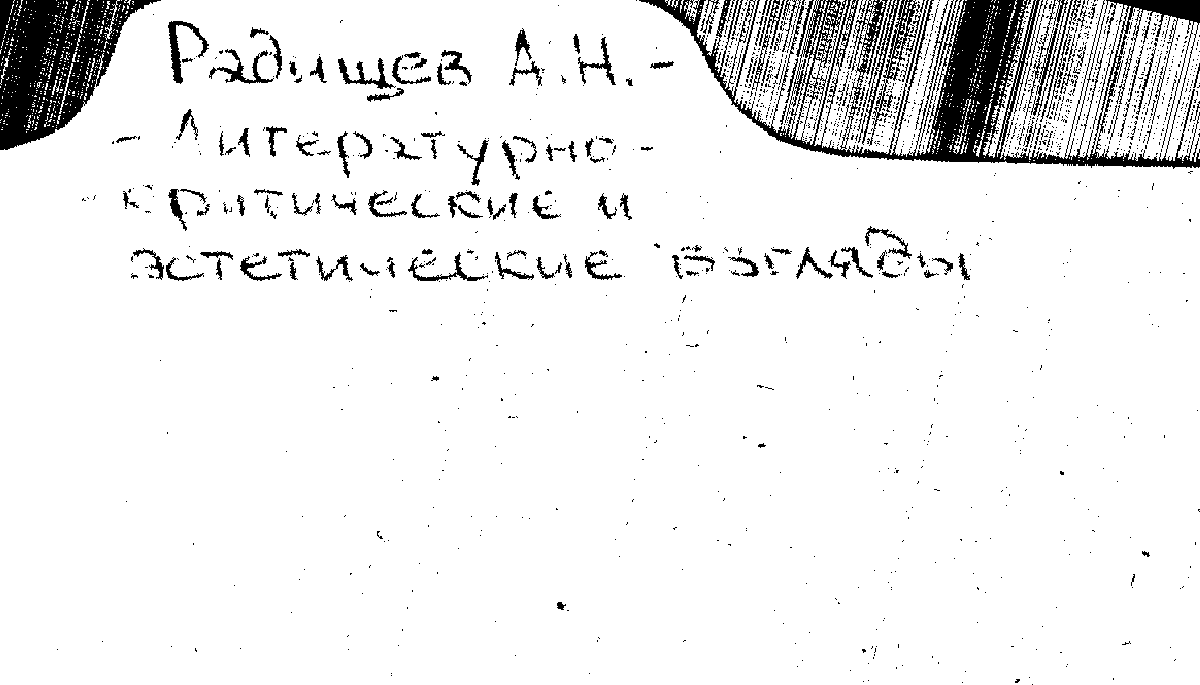 Радищев А.Н. -
- Литературно-
критические и
эстетические взгляды